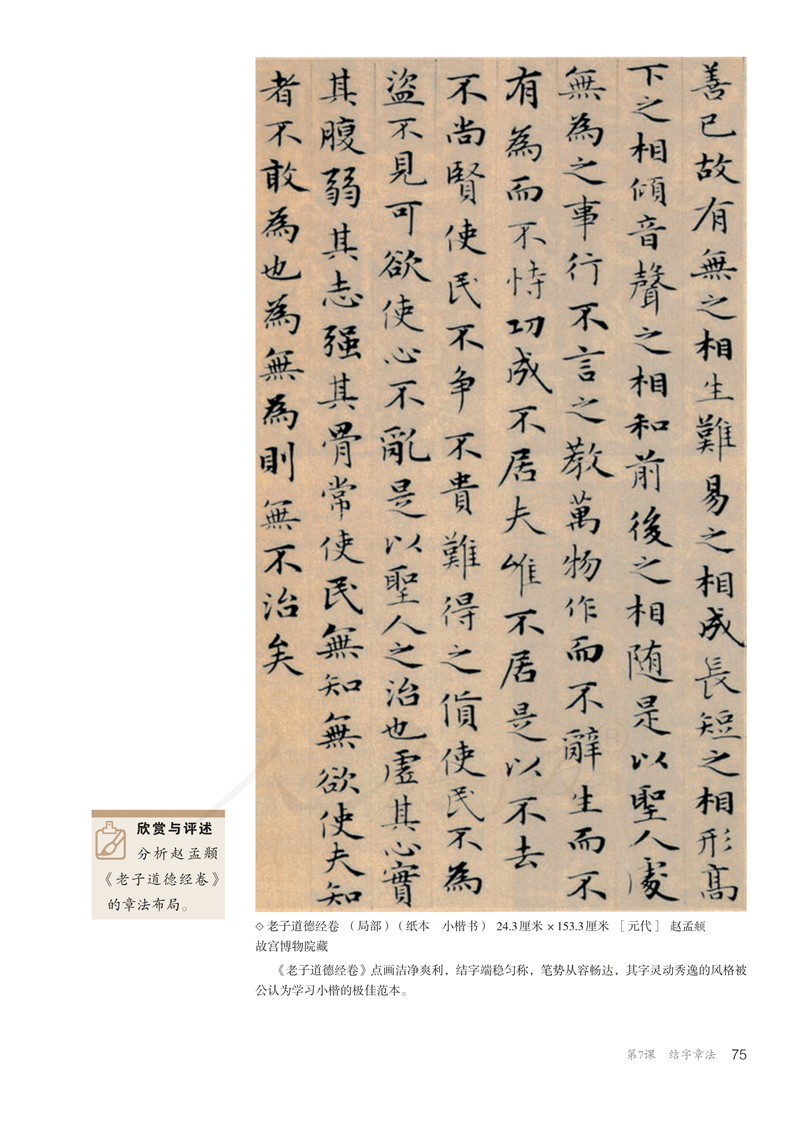 善已故有無之相生難易之相成長短之相形高
下之相傾音聲之相和前後之相随是以聖人處
無為之事行不言之教萬物作而不辭生而不
有為而不恃功成不居夫惟不居是以不去
不尚賢使民不争不貴難得之貨使民不為
盜不見可欲使心不亂是以聖人之治也虛其心實
其腹弱其志强其骨常使民無知無欲使夫知
者不敢為也為無為則無不治矣
欣赏与评述
分析赵孟頫
《老子道德经卷》
的章法布局。
◇老子道德经卷 （局部）（纸本 小楷书） 24.3厘米×153.3厘米 ［元代］ 赵孟頫
故宫博物院藏
《老子道德经卷》点画洁净爽利，结字端稳匀称，笔势从容畅达，其字灵动秀逸的风格被
公认为学习小楷的极佳范本。
第7课 结字章法 75